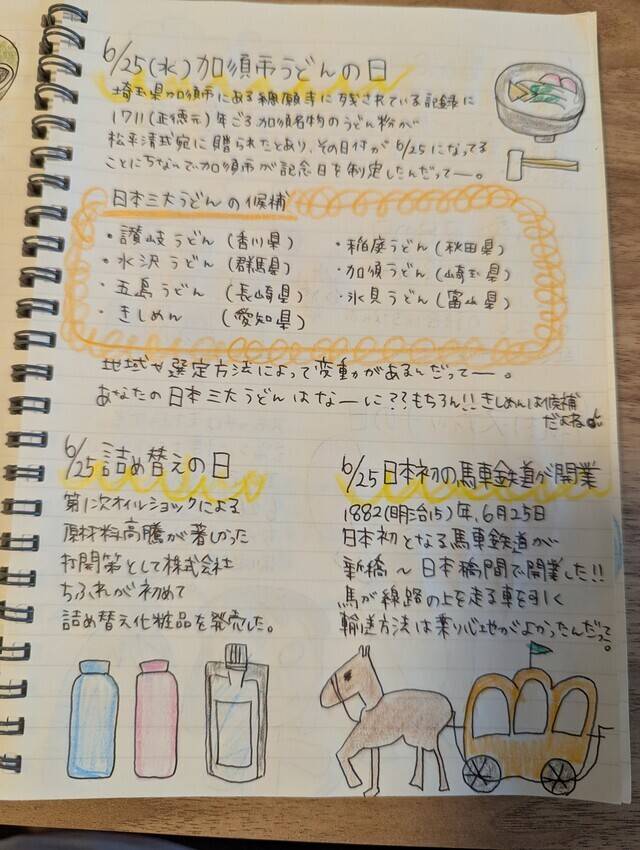 6/25(水)加須市うどんの日
埼玉県加須市にある總願寺に残されている記録に
1711(正徳元)年ごろ加須名物のうどん粉が
松平清武宛に贈られたとあり、その日付が6/25になってる
ことにちなんで加須市が記念日を制定したんだってー。
日本三大うどんの候補
・讃岐うどん(香川県)
・水沢うどん(群馬県)
・五島うどん(長崎県)
・きしめん(愛知県)
・稲庭うどん(秋田県)
・加須うどん(埼玉県)
・氷見うどん(富山県)
地域や選定方法によって変動があるんだってー。
あなたの日本三大うどんはなーに??もちろん!!きしめんは候補
だよね
6/25詰め替えの日
第1次オイルショックによる
原材料高騰が著しかった
打開策として株式会社
ちふれが初めて
詰め替え化粧品を発売した。
6/25日本初の馬車鉄道が開業
1882(明治15)年、6月25日
日本初となる馬車鉄道が
新橋〜日本橋間で開業した!!
馬が線路の上を走る車を引く
輸送方法は乗り心地がよかったんだって。